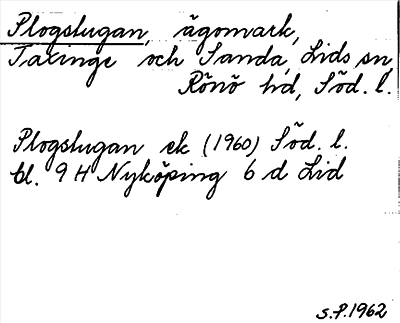 Plogslugan, ägomark,
Taxinge och Sanda, Lids sn,
Rönö hd, Söd. l.
Plogslugan ek (1960) Söd. l.
bl. 9 H Nyköping 6 d Lid
S.P. 1962